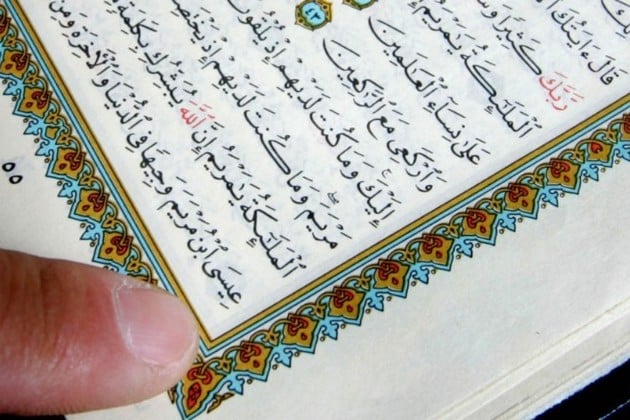 قَالَ ءَايَتُكَ
رَّبَّكَ كَثِيرًا
ٱلْمَلَٰٓئِكَةُ يَٰمَرْيَمُ
عَلَىٰ نِسَآءِ ٱلْعَٰلَمِينَ
وَٱرْكَعِى مَعَ ٱلرَّٰكِعِينَ ٤٣
إِلَيْكَ وَمَا كُنتَ لَدَيْهِمْ إِذْ يُلْقُونَ
مَرْيَمَ وَمَا كُنتَ لَدَيْهِمْ إِذْ
ٱلْمَلَٰٓئِكَةُ يَٰمَرْيَمُ إِنَّ ٱللَّهَ يُبَشِّرُكِ بِكَلِمَةٍ
عِيسَى ٱبْنُ مَرْيَمَ وَجِيهًا فِى ٱلدُّنْيَا وَٱلْءَاخِرَةِ وَمِنَ
٥٥